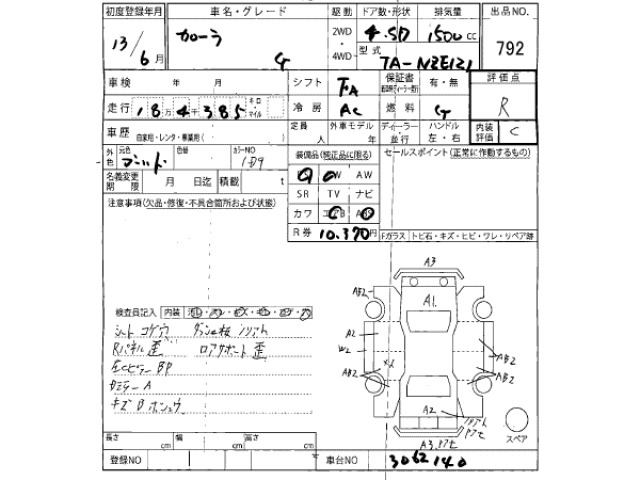 初度登録年月 車名・グレード 駆動 ドア数・形状 排気量 出品NO.
13/6月 カローラ G 2WD・4WD 4 SD 1500cc 792
型式 TA-NZE121
車検 年 月 シフト FA 保証書 有・無 評価点 R
走行 18万4千385 キロ・マイル 冷房 AC 燃料 G 内装評価 C
車歴 自家用・レンタ・事業用( ) 定員 人 外車モデル 年 ディーラー・並行 ハンドル 左・右
外色 元色 色替 カラーNO 1D9 装備品(純正品に限る) セールスポイント(正常に作動するもの)
名義変更期限 月 日迄 積載 t PW AW
SR TV ナビ
注意事項(欠品・修復・不具合箇所および状態) カワ エアB ABS
R券 10.370円 Fガラス トビ石・キズ・ヒビ・ワレ・リペア跡
検査員記入 内装
シート コゲ穴
Rパネル歪 ロアサポート歪
左Cピラー BP
A
キズB
A3
A1
AB2
A2
W2
XX
AB2
AB2
AB2
A2
A3
スペア
長さ cm 幅 cm 高さ cm
登録NO 車台NO 3062140